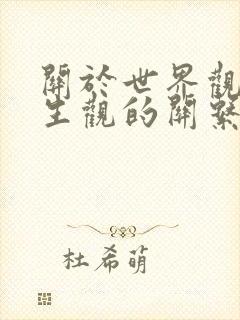 關於世界觀
生觀的關繫
杜希萌